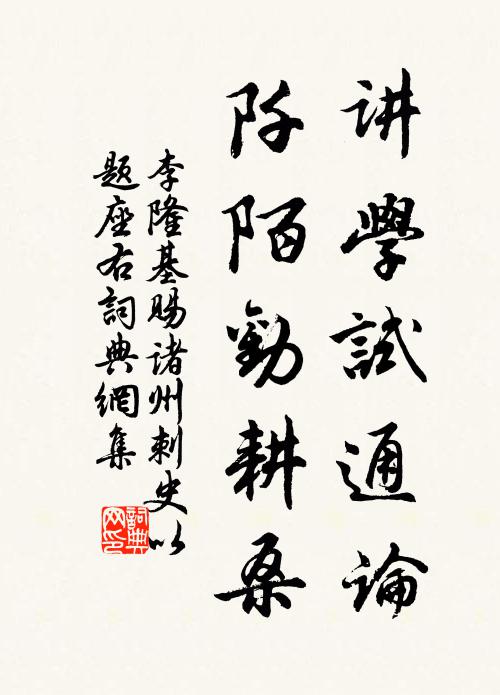 讲學試通論
阡陌勸耕桑
李隆基賜诸州刺史以
题座右詞典網集
詞典网印